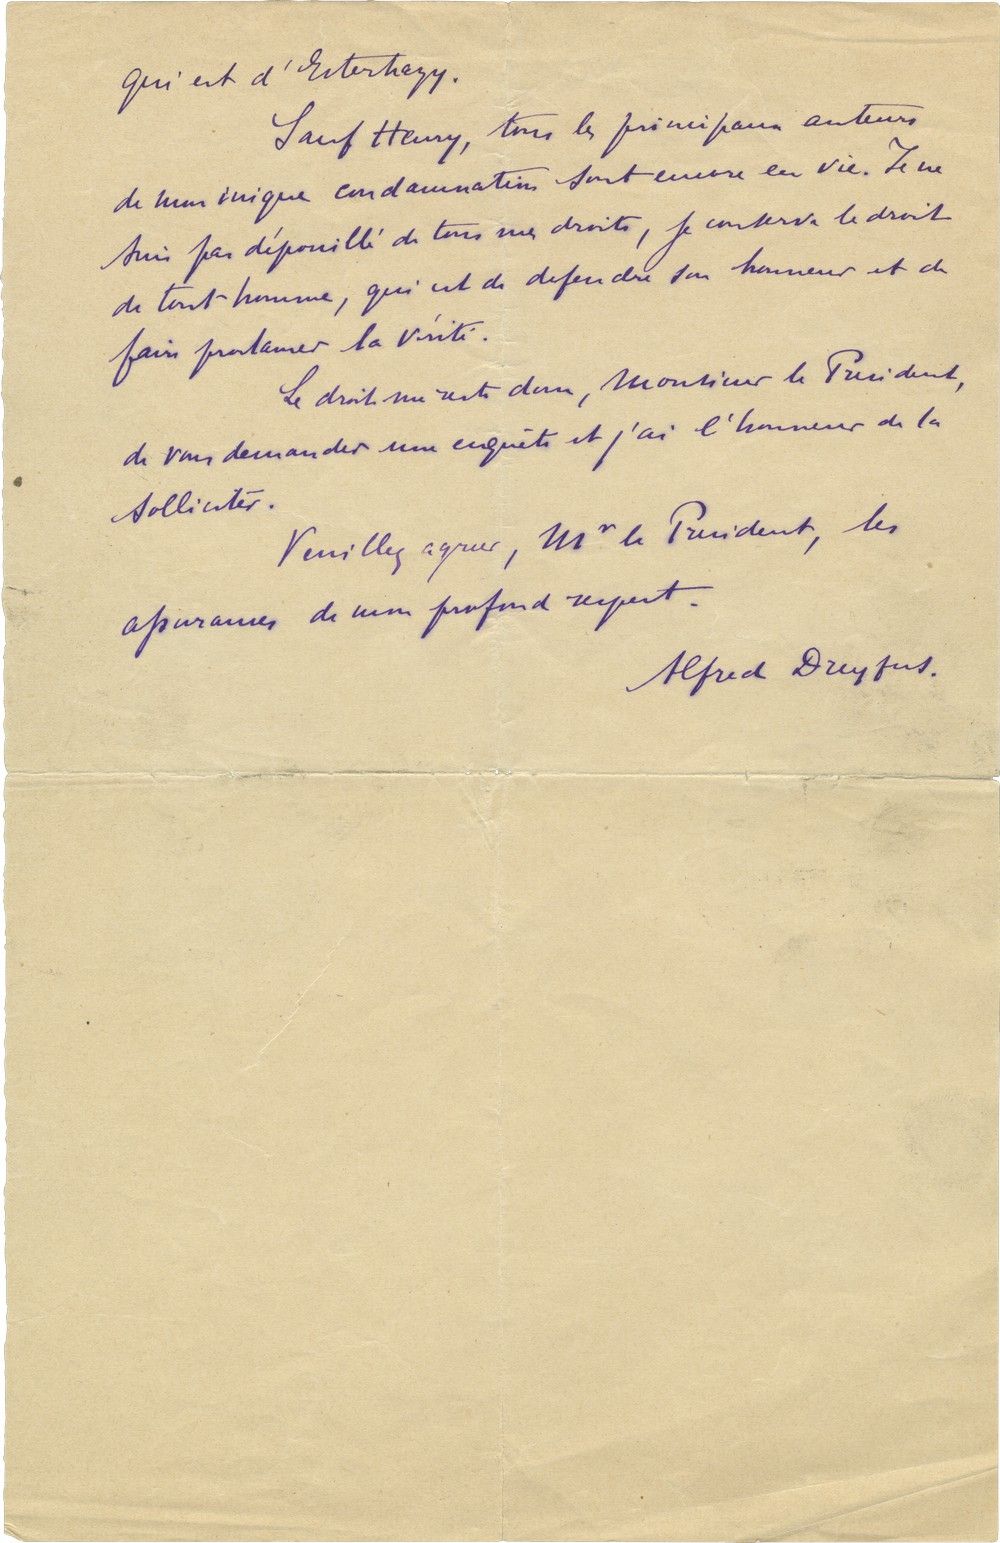 qui est d'Esterhazy.
Sauf Henry, tous les principaux auteurs
de mon inique condamnation sont encore en vie. Je ne
suis pas dépouillé de tous mes droits, je conserve le droit
de tout homme, qui est de defendre son honneur et de
faire proclamer la vérité.
Le droit me reste donc, Monsieur le President,
de vous demander une enquête et j'ai l'honneur de la
solliciter.
Veuillez agréer, Mr le President, les
assurances de mon profond respect.
Alfred Dreyfus.